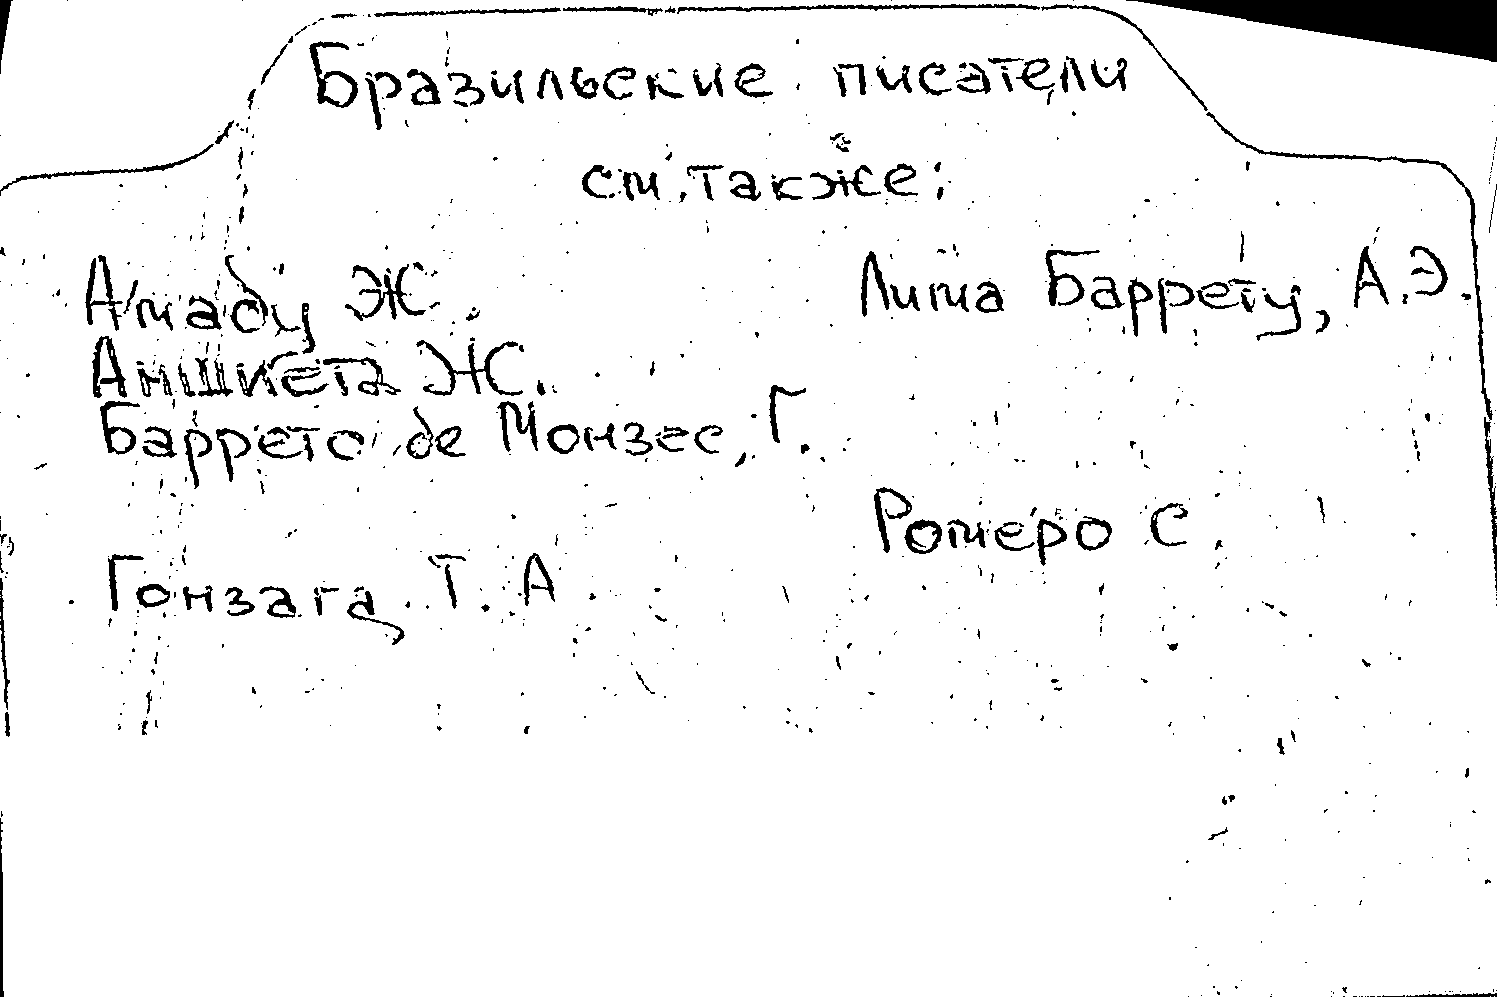 Бразильские писатели
см. также:
Амаду Ж.
Аншиета Ж.
Баррето де Монзес, Г.
Гонзага Т. А
Лима Баррету, А.Э.
Ромеро С.